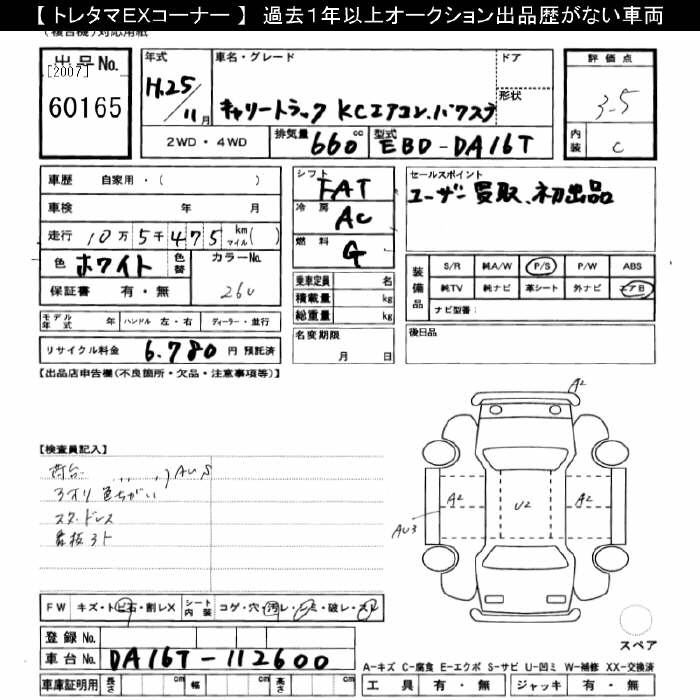 【 トレタマEXコーナー 】 過去1年以上オークション出品歴がない車両
(複合機)対応用紙
出品No.
[2007]
60165
年式
H.25/11月
車名・グレード
キャリートラック KCエアコン.パワステ
ドア
形状
2WD・4WD
排気量 660cc
型式 EBD-DA16T
評価点
3.5
内装 C
車歴 自家用・( )
車検 年 月
走行 10万5千475 km マイル( )
色 ホワイト 色替 カラーNo.
保証書 有・無 26U
モデル年式 年 ハンドル 左・右 ディーラー・並行
リサイクル料金 6.780 円 預託済
シフト FAT
冷房 AC
燃料 G
乗車定員 名
積載量 kg
総重量 kg
名変期限
月 日
セールスポイント
ユーザー買取、初出品
装備品 S/R 純A/W P/S P/W ABS
純TV 純ナビ 革シート 外ナビ エアB
ナビ型番:
後日品
【出品店申告欄(不良箇所・欠品・注意事項等)】
【検査員記入】
荷台 AUS
アオリ 色ちがい
スタッドレス
看板跡
A2
A2
U2
A2
AU3
FW キズ・トビ石・割レX シート内装 コゲ・穴・汚レ・シミ・破レ・スレ
登録No.
車台No. DA16T-112600
車庫証明用 長さ cm 幅 cm 高さ cm
スペア
A-キズ C-腐食 E-エクボ S-サビ U-凹ミ W-補修 XX-交換済
工具 有・無 ジャッキ 有・無